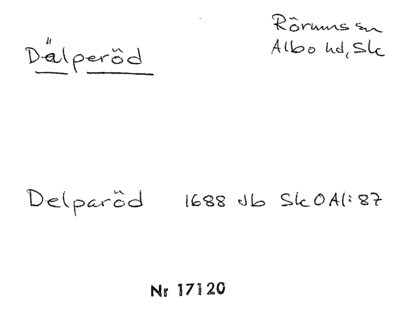 Dälperöd
Rörums sn
Albo hd, Sk
Delparöd 1688 Jb Sk O Al: 87
Nr 17120